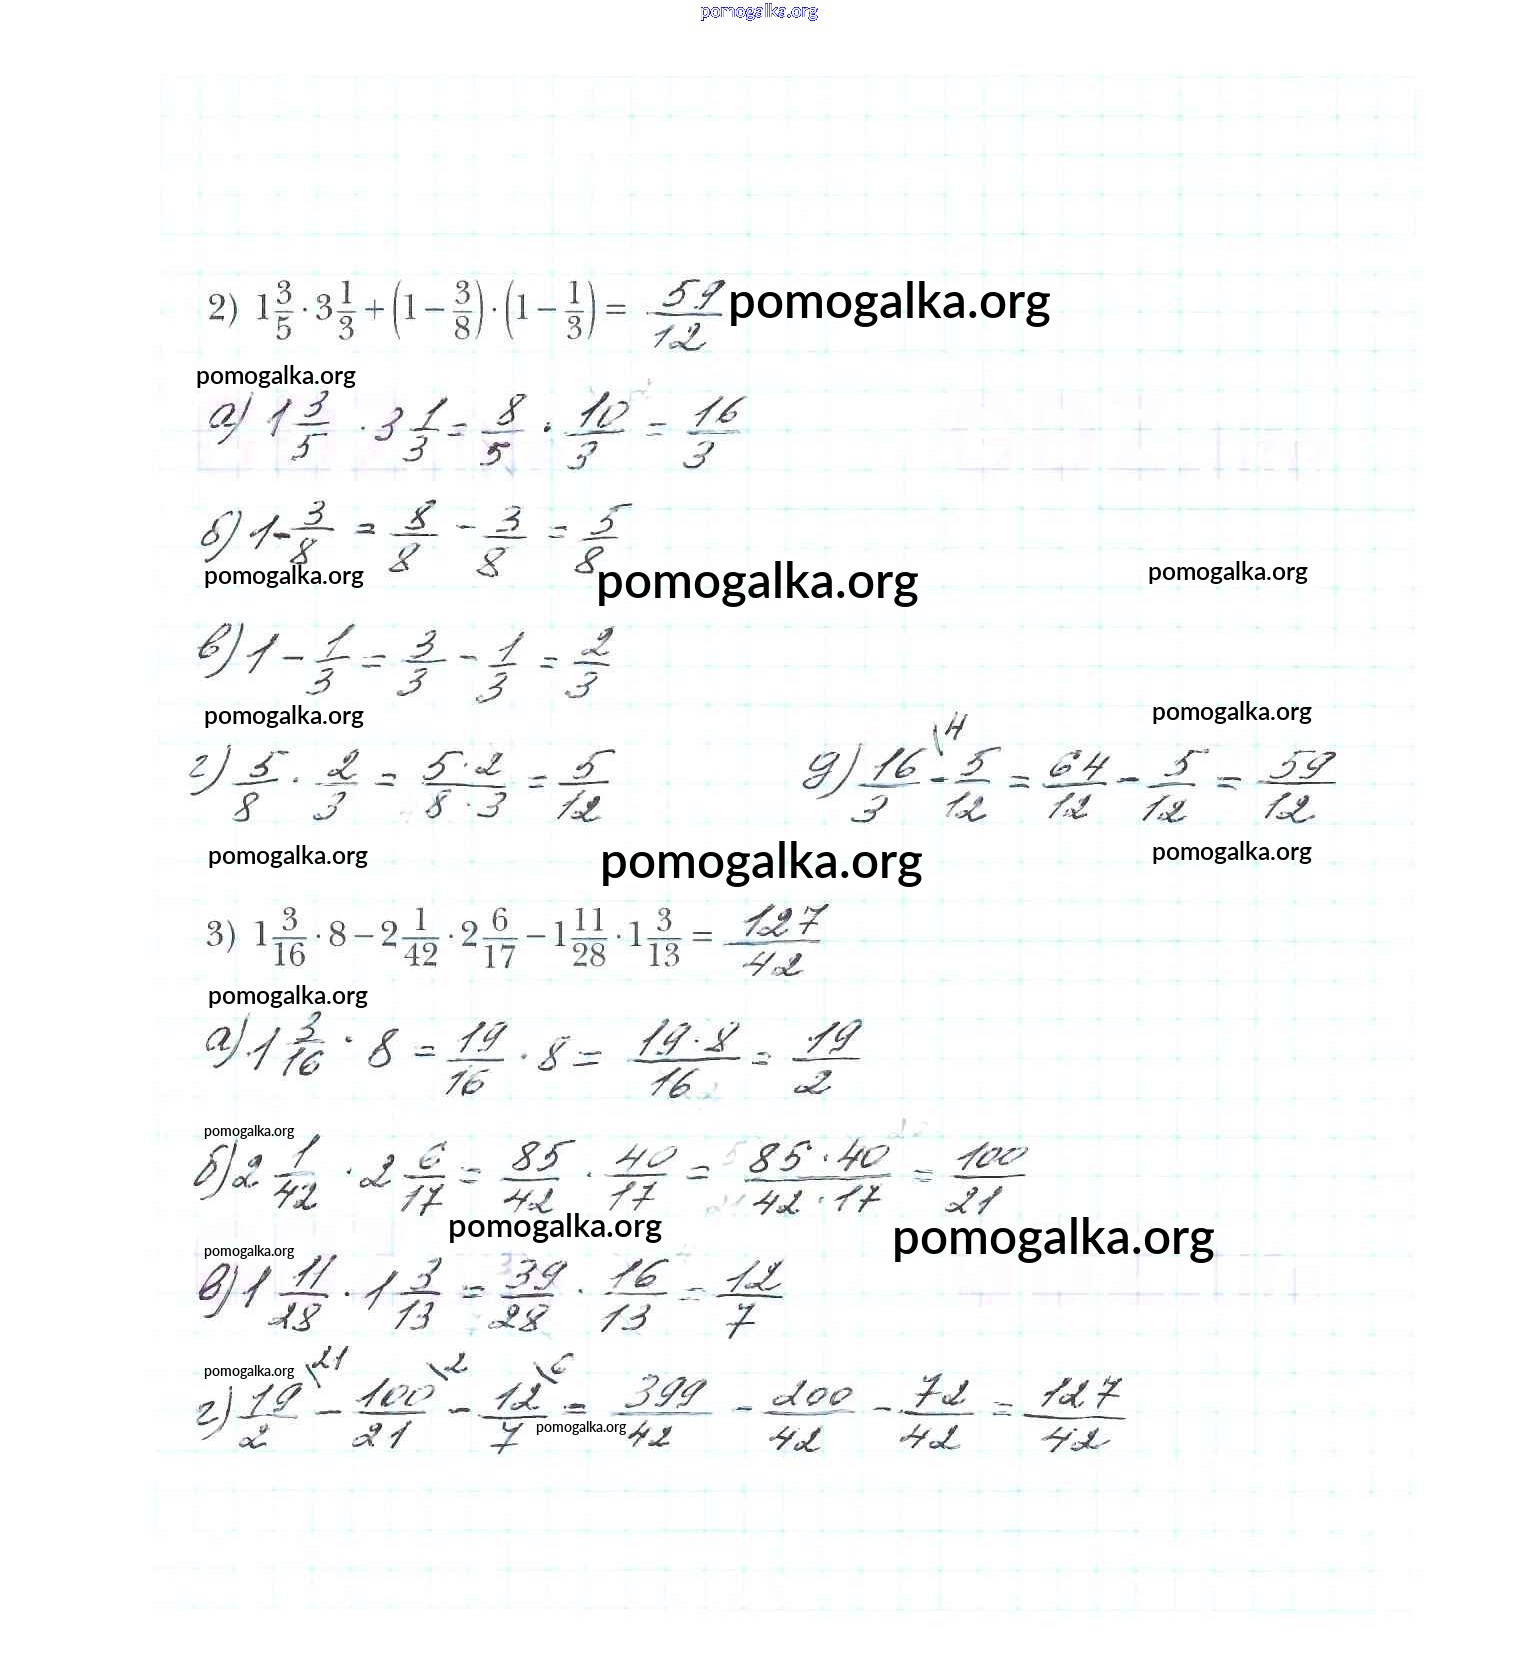 pomogalka.org
2) 1 3/5 · 3 1/3 + (1 − 3/8) · (1 − 1/3) = 59/12 pomogalka.org
pomogalka.org
а) 1 3/5 · 3 1/3 = 8/5 · 10/3 = 16/3
б) 1 - 3/8 = 8/8 - 3/8 = 5/8
pomogalka.org pomogalka.org pomogalka.org
в) 1 - 1/3 = 3/3 - 1/3 = 2/3
pomogalka.org pomogalka.org
г) 5/8 · 2/3 = 5·2/8·3 = 5/12 д) 16/3 \4 - 5/12 = 64/12 - 5/12 = 59/12
pomogalka.org pomogalka.org pomogalka.org
3) 1 3/16 · 8 − 2 1/42 · 2 6/17 − 1 11/28 · 1 3/13 = 127/42
pomogalka.org
а) 1 3/16 · 8 = 19/16 · 8 = 19·8/16 = 19/2
pomogalka.org
б) 2 1/42 · 2 6/17 = 85/42 · 40/17 = 85·40/42·17 = 100/21
pomogalka.org pomogalka.org
pomogalka.org
в) 1 11/28 · 1 3/13 = 39/28 · 16/13 = 12/7
pomogalka.org
г) 19/2 \21 - 100/21 \2 - 12/7 \6 = 399/42 - 200/42 - 72/42 = 127/42
pomogalka.org